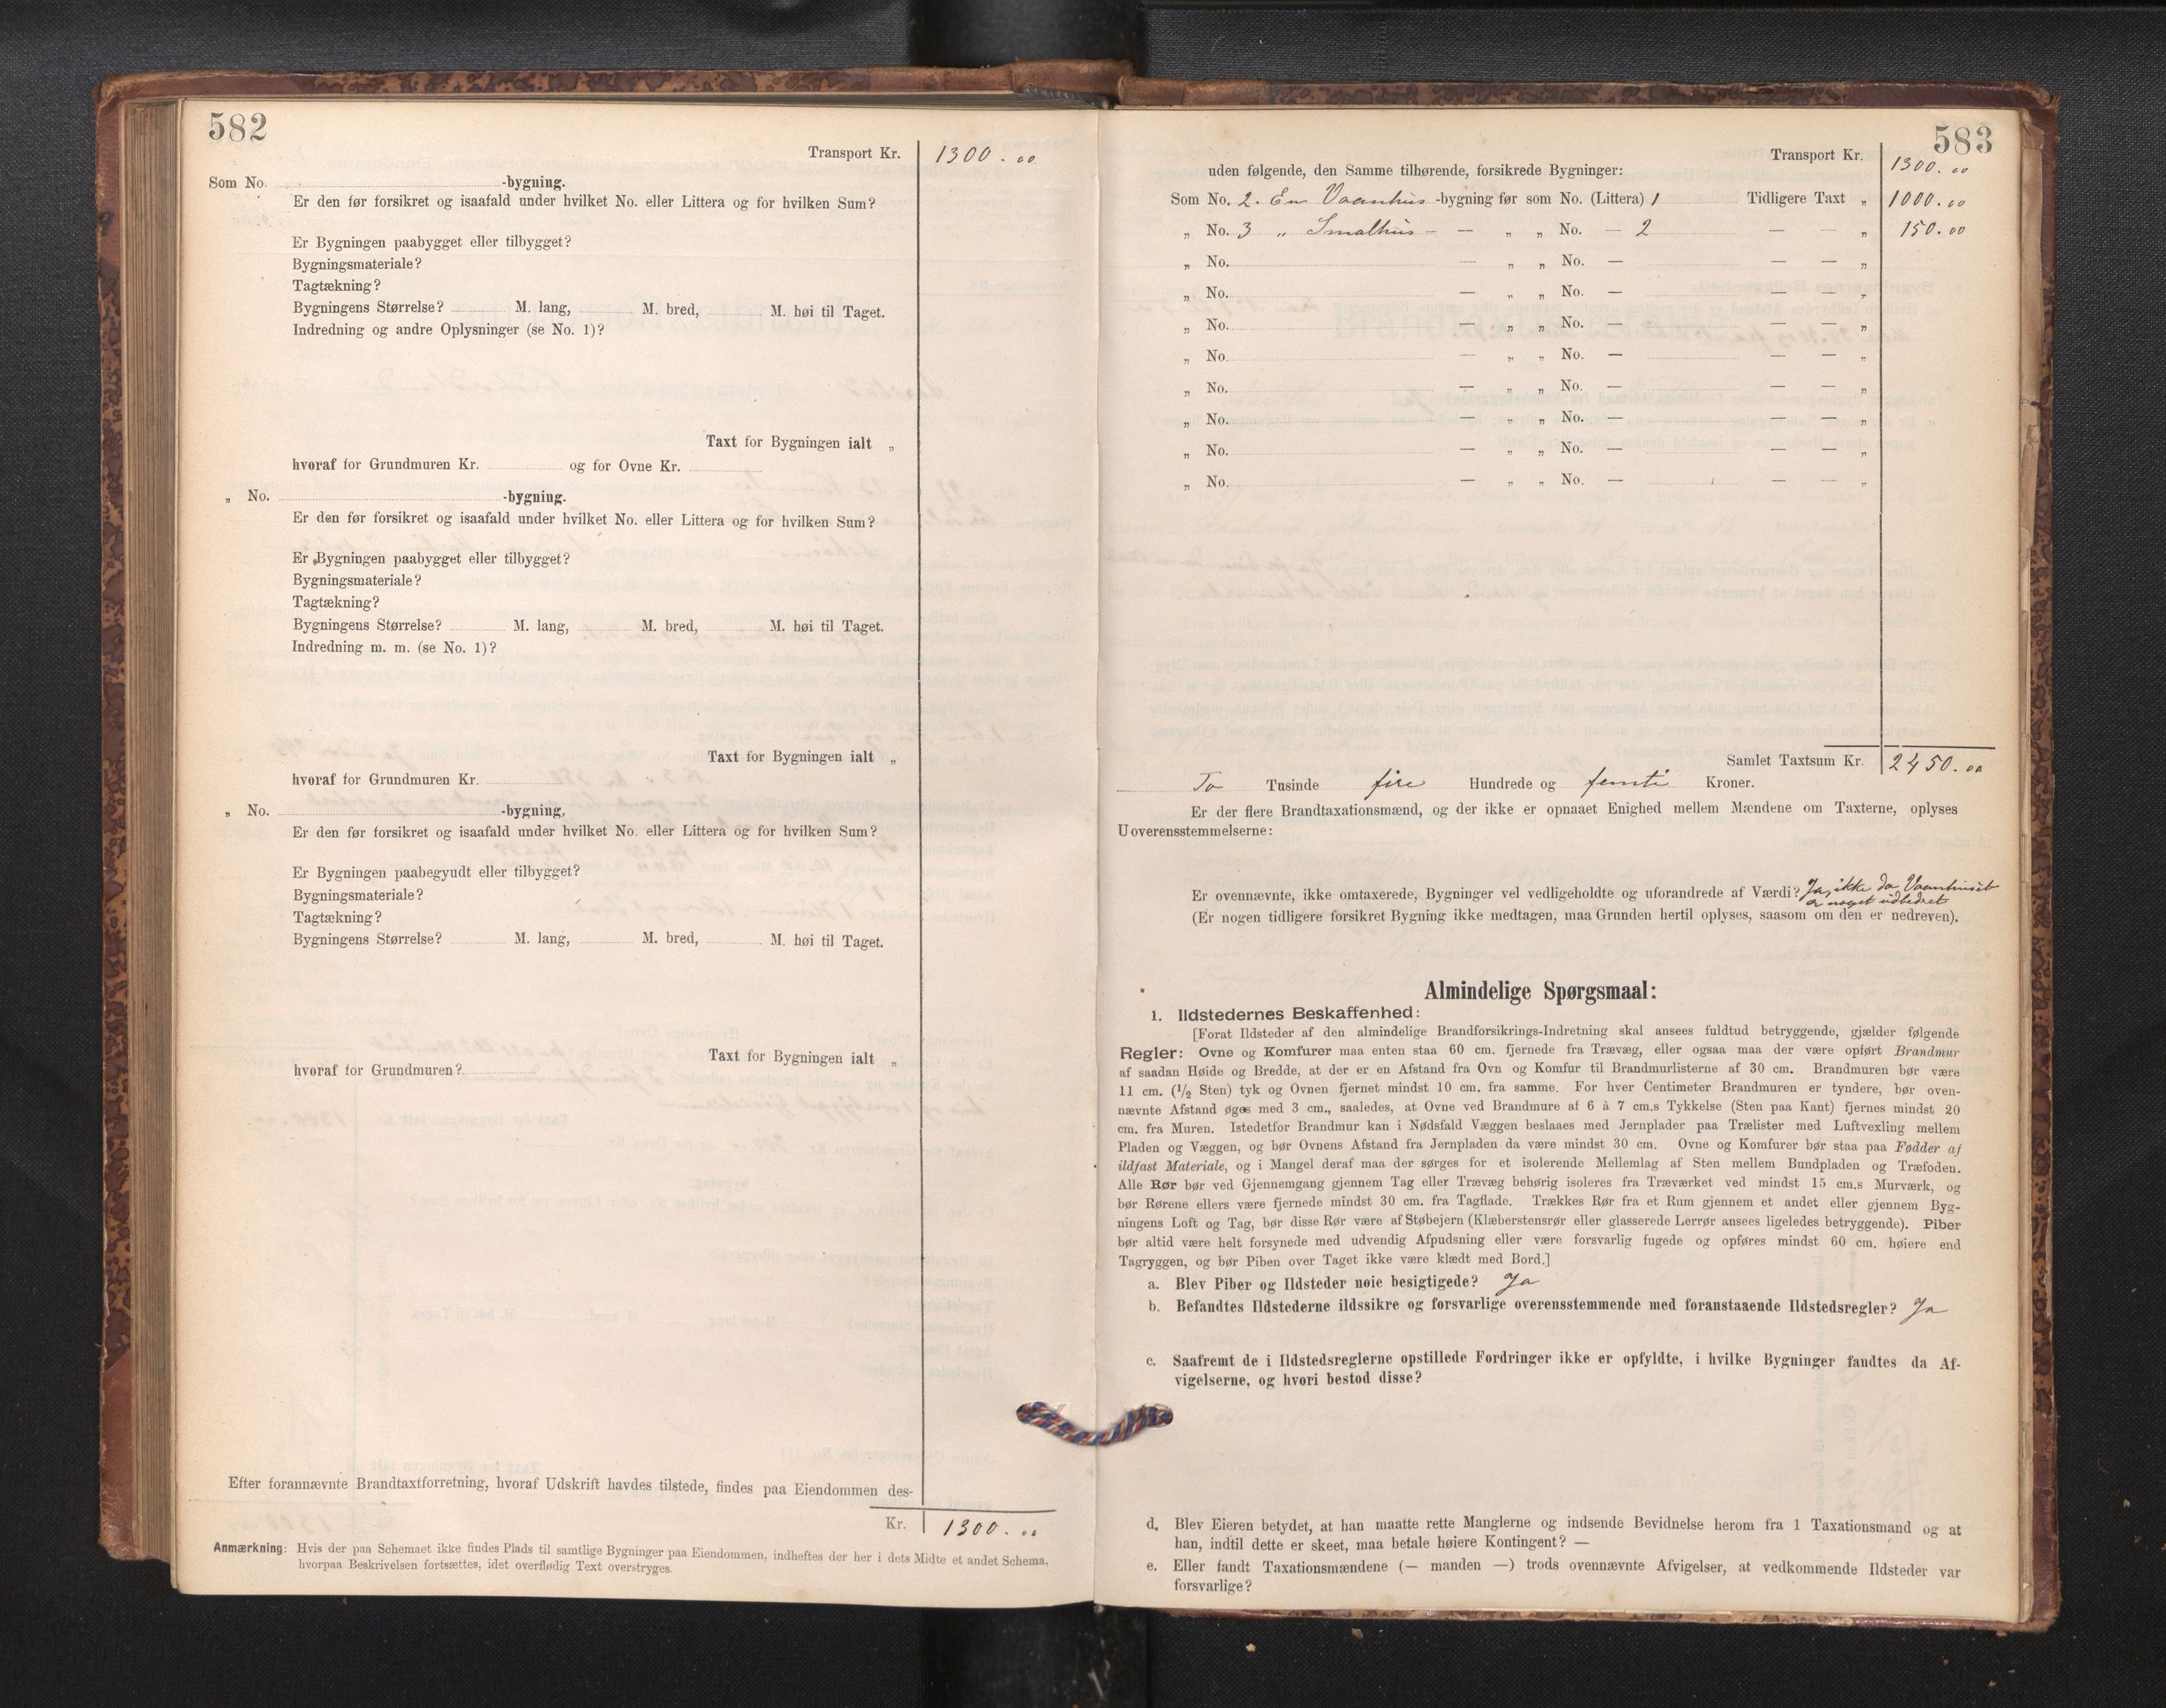 582
Transport Kr. 1300.00
Som No. -bygning.
Er den før forsikret og isaafald under hvilket No. eller Littera og for hvilken Sum?
Er Bygningen paabygget eller tilbygget?
Bygningsmateriale?
Tagtækning?
Bygningens Størrelse? M. lang, M. bred, M. høi til Taget.
Indredning og andre Oplysninger (se No. 1)?
Taxt for Bygningen ialt „
hvoraf for Grundmuren Kr. og for Ovne Kr.
„ No. -bygning.
Er den før forsikret og isaafald under hvilket No. eller Littera og for hvilken Sum?
Er Bygningen paabygget eller tilbygget?
Bygningsmateriale?
Tagtækning?
Bygningens Størrelse? M. lang, M. bred, M. høi til Taget.
Indredning m. m. (se No. 1)?
Taxt for Bygningen ialt „
hvoraf for Grundmuren Kr.
„ No. -bygning,
Er den før forsikret og isaafald under hvilket No. eller Littera og for hvilken Sum?
Er Bygningen paabegyndt eller tilbygget?
Bygningsmateriale?
Tagtækning?
Bygningens Størrelse? M. lang, M. bred, M. høi til Taget.
Taxt for Bygningen ialt „
hvoraf for Grundmuren?
Efter forannævnte Brandtaxtforretning, hvoraf Udskrift havdes tilstede, findes paa Eiendommen des-
Kr. 1300.00
Anmærkning: Hvis der paa Schemaet ikke findes Plads til samtlige Bygninger paa Eiendommen, indheftes der her i dets Midte et andet Schema,
hvorpaa Beskrivelsen fortsættes, idet overflødig Text overstryges.
583
Transport Kr. 1300.00
uden følgende, den Samme tilhørende, forsikrede Bygninger:
Som No. 2. En Vaanhus -bygning før som No. (Littera) 1 Tidligere Taxt „ 1000.00
„ No. 3 „ Smalhus - — „ „ No. — 2 — — „ 150.00
„ No. — „ „ No. — — — „
„ No. — „ „ No. — — — „
„ No. — „ „ No. — — — „
„ No. — „ „ No. — — — „
„ No. — „ „ No. — — — „
„ No. — „ „ No. — — — „
„ No. — „ „ No. — — — „
„ No. — „ „ No. — — — „
Samlet Taxtsum Kr. 2450.00
To Tusinde fire Hundrede og femti Kroner.
Er der flere Brandtaxationsmænd, og der ikke er opnaaet Enighed mellem Mændene om Taxterne, oplyses
Uoverensstemmelserne:
Er ovennævnte, ikke omtaxerede, Bygninger vel vedligeholdte og uforandrede af Værdi? Ja, ikke da Vaanhuset
er noget udbedret
(Er nogen tidligere forsikret Bygning ikke medtagen, maa Grunden hertil oplyses, saasom om den er nedreven).
Almindelige Spørgsmaal:
1. Ildstedernes Beskaffenhed:
[Forat Ildsteder af den almindelige Brandforsikrings-Indretning skal ansees fuldtud betryggende, gjælder følgende
Regler: Ovne og Komfurer maa enten staa 60 cm. fjernede fra Trævæg, eller ogsaa maa der være opført Brandmur
af saadan Høide og Bredde, at der er en Afstand fra Ovn og Komfur til Brandmurlisterne af 30 cm. Brandmuren bør være
11 cm. (1/2 Sten) tyk og Ovnen fjernet mindst 10 cm. fra samme. For hver Centimeter Brandmuren er tyndere, bør oven-
nævnte Afstand øges med 3 cm., saaledes, at Ovne ved Brandmure af 6 à 7 cm.s Tykkelse (Sten paa Kant) fjernes mindst 20
cm. fra Muren. Istedetfor Brandmur kan i Nødsfald Væggen beslaaes med Jernplader paa Trælister med Luftvexling mellem
Pladen og Væggen, og bør Ovnens Afstand fra Jernpladen da være mindst 30 cm. Ovne og Komfurer bør staa paa Fødder af
ildfast Materiale, og i Mangel deraf maa der sørges for et isolerende Mellemlag af Sten mellem Bundpladen og Træfoden.
Alle Rør bør ved Gjennemgang gjennem Tag eller Trævæg behørig isoleres fra Træværket ved mindst 15 cm.s Murværk, og
bør Rørene ellers være fjernede mindst 30 cm. fra Tagflade. Trækkes Rør fra et Rum gjennem et andet eller gjennem Byg-
ningens Loft og Tag, bør disse Rør være af Støbejern (Klæberstensrør eller glasserede Lerrør ansees ligeledes betryggende). Piber
bør altid være helt forsynede med udvendig Afpudsning eller være forsvarlig fugede og opføres mindst 60 cm. høiere end
Tagryggen, og bør Piben over Taget ikke være klædt med Bord.]
a. Blev Piber og Ildsteder nøie besigtigede? Ja
b. Befandtes Ildstederne ildssikre og forsvarlige overensstemmende med foranstaaende Ildstedsregler? Ja
c. Saafremt de i Ildstedsreglerne opstillede Fordringer ikke er opfyldte, i hvilke Bygninger fandtes da Af-
vigelserne, og hvori bestod disse?
d. Blev Eieren betydet, at han maatte rette Manglerne og indsende Bevidnelse herom fra 1 Taxationsmand og at
han, indtil dette er skeet, maa betale høiere Kontingent? —
e. Eller fandt Taxationsmændene (— manden —) trods ovennævnte Afvigelser, at vedkommende Ildsteder var
forsvarlige?